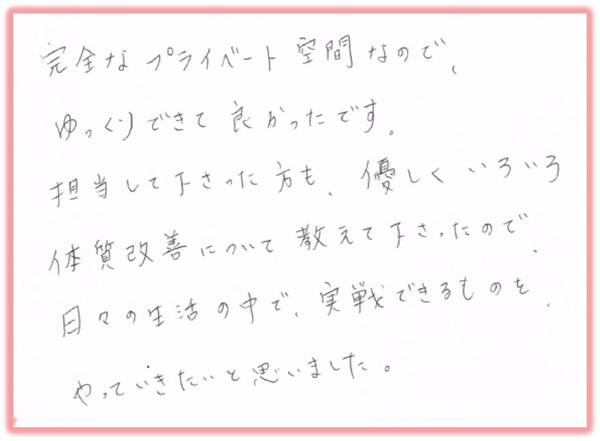 完全なプライベート空間なので、
ゆっくりできて良かったです。
担当して下さった方も、優しくいろいろ
体質改善について教えて下さったので、
日々の生活の中で、実戦できるものを、
やっていきたいと思いました。